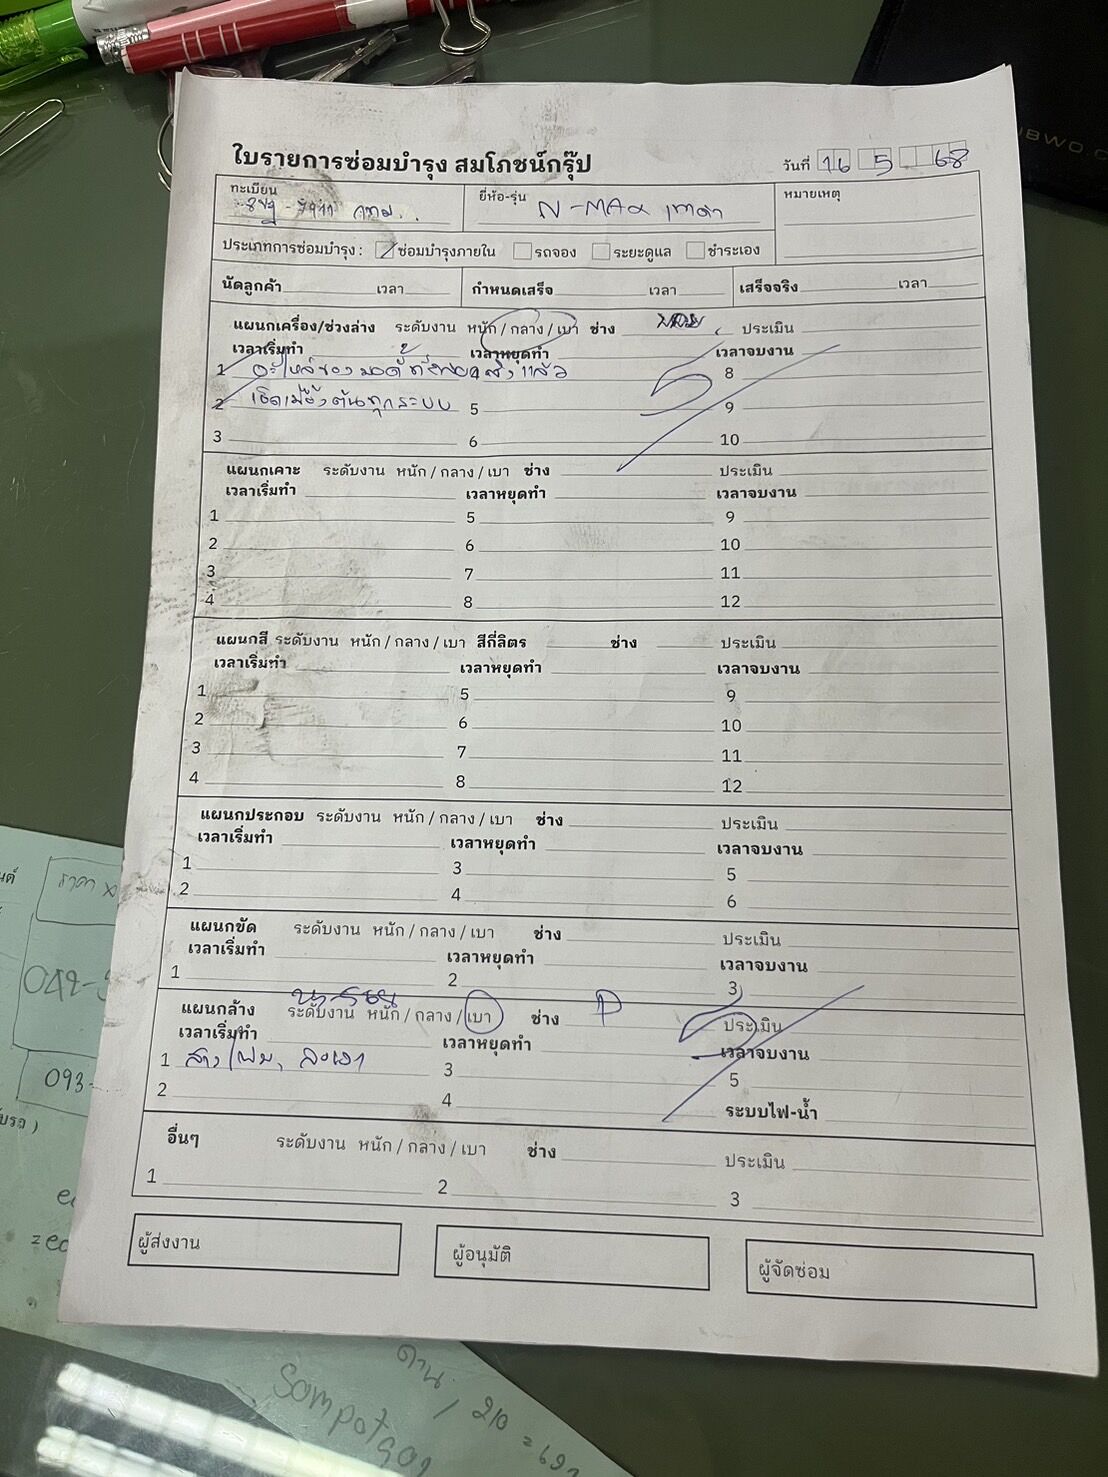 ใบรายการซ่อมบำรุง สมโภชน์กรุ๊ป
วันที่ 16 5 68
ทะเบียน
กทม.
ยี่ห้อ-รุ่น N-MAX เทาดำ
หมายเหตุ
ประเภทการซ่อมบำรุง : ซ่อมบำรุงภายใน รถจอง ระยะดูแล ชำระเอง
นัดลูกค้า เวลา กำหนดเสร็จ เวลา เสร็จจริง เวลา
แผนกเครื่อง/ช่วงล่าง ระดับงาน หนัก / กลาง / เบา ช่าง ประเมิน
เวลาเริ่มทำ เวลาหยุดทำ เวลาจบงาน
1 อะไหล่ของ สั่งแล้ว 8
2 เช็คเบื้องต้นทุกระบบ 5 9
3 6 10
แผนกเคาะ ระดับงาน หนัก / กลาง / เบา ช่าง ประเมิน
เวลาเริ่มทำ เวลาหยุดทำ เวลาจบงาน
1 5 9
2 6 10
3 7 11
4 8 12
แผนกสี ระดับงาน หนัก / กลาง / เบา สีกี่ลิตร ช่าง ประเมิน
เวลาเริ่มทำ เวลาหยุดทำ เวลาจบงาน
1 5 9
2 6 10
3 7 11
4 8 12
แผนกประกอบ ระดับงาน หนัก / กลาง / เบา ช่าง ประเมิน
เวลาเริ่มทำ เวลาหยุดทำ เวลาจบงาน
1 3 5
2 4 6
แผนกขัด ระดับงาน หนัก / กลาง / เบา ช่าง ประเมิน
เวลาเริ่มทำ เวลาหยุดทำ เวลาจบงาน
1 2 3
แผนกล้าง ระดับงาน หนัก / กลาง / เบา ช่าง P ประเมิน
เวลาเริ่มทำ เวลาหยุดทำ เวลาจบงาน
1 ล้าง 3 5
2 4 ระบบไฟ-น้ำ
อื่นๆ ระดับงาน หนัก / กลาง / เบา ช่าง ประเมิน
1 2 3
ผู้ส่งงาน ผู้อนุมัติ ผู้จัดซ่อม
ราคา
093-